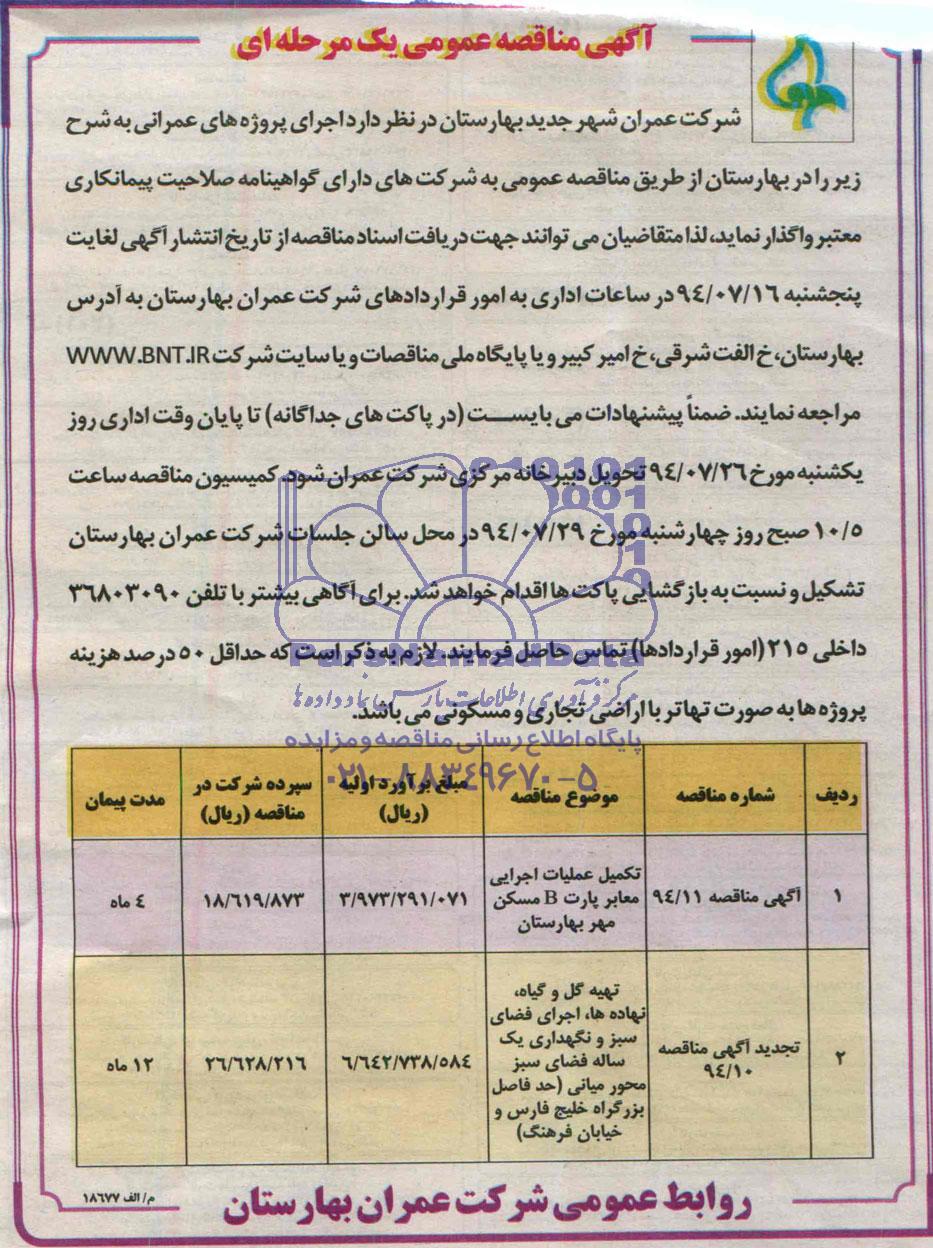 آگهی مناقصه عمومی یک مرحله ای
شرکت عمران شهر جدید بهارستان در نظر دارد اجرای پروژه های عمرانی به شرح
زیر را در بهارستان از طریق مناقصه عمومی به شرکت های دارای گواهینامه صلاحیت پیمانکاری
معتبر واگذار نماید، لذا متقاضیان می توانند جهت دریافت اسناد مناقصه از تاریخ انتشار آگهی لغایت
پنجشنبه ۹۴/۰۷/۱۶ در ساعات اداری به امور قراردادهای شرکت عمران بهارستان به آدرس
بهارستان، خ الفت شرقی، خ امیر کبیر و یا پایگاه ملی مناقصات و یا سایت شرکت WWW.BNT.IR
مراجعه نمایند. ضمناً پیشنهادات می بایست (در پاکت های جداگانه) تا پایان وقت اداری روز
یکشنبه مورخ ۹۴/۰۷/۲۶ تحویل دبیرخانه مرکزی شرکت عمران شود. کمیسیون مناقصه ساعت
۱۰/۵ صبح روز چهارشنبه مورخ ۹۴/۰۷/۲۹ در محل سالن جلسات شرکت عمران بهارستان
تشکیل و نسبت به بازگشایی پاکت ها اقدام خواهد شد. برای آگاهی بیشتر با تلفن ۳۶۸۰۳۰۹۰
داخلی ۲۱۵ (امور قراردادها) تماس حاصل فرمایند. لازم به ذکر است که حداقل ۵۰ درصد هزینه
پروژه ها به صورت تهاتر با اراضی تجاری و مسکونی می باشد.
ParsNamadData
مرکز فرآوری اطلاعات پارس نماد داده ها
پایگاه اطلاع رسانی مناقصه و مزایده
۰۲۱-۸۸۳۴۹۶۷۰-۵
ردیف شماره مناقصه موضوع مناقصه مبلغ برآورد اولیه (ریال) سپرده شرکت در مناقصه (ریال) مدت پیمان
۱ آگهی مناقصه ۹۴/۱۱ تکمیل عملیات اجرایی معابر پارت B مسکن مهر بهارستان ۳/۹۷۳/۲۹۱/۰۷۱ ۱۸/۶۱۹/۸۷۳ ۴ ماه
۲ تجدید آگهی مناقصه ۹۴/۱۰ تهیه گل و گیاه، نهاده ها، اجرای فضای سبز و نگهداری یک ساله فضای سبز محور میانی (حد فاصل بزرگراه خلیج فارس و خیابان فرهنگ) ۶/۶۴۲/۷۳۸/۵۸۴ ۲۶/۶۲۸/۲۱۶ ۱۲ ماه
روابط عمومی شرکت عمران بهارستان
م/ الف ۱۸۶۷۷